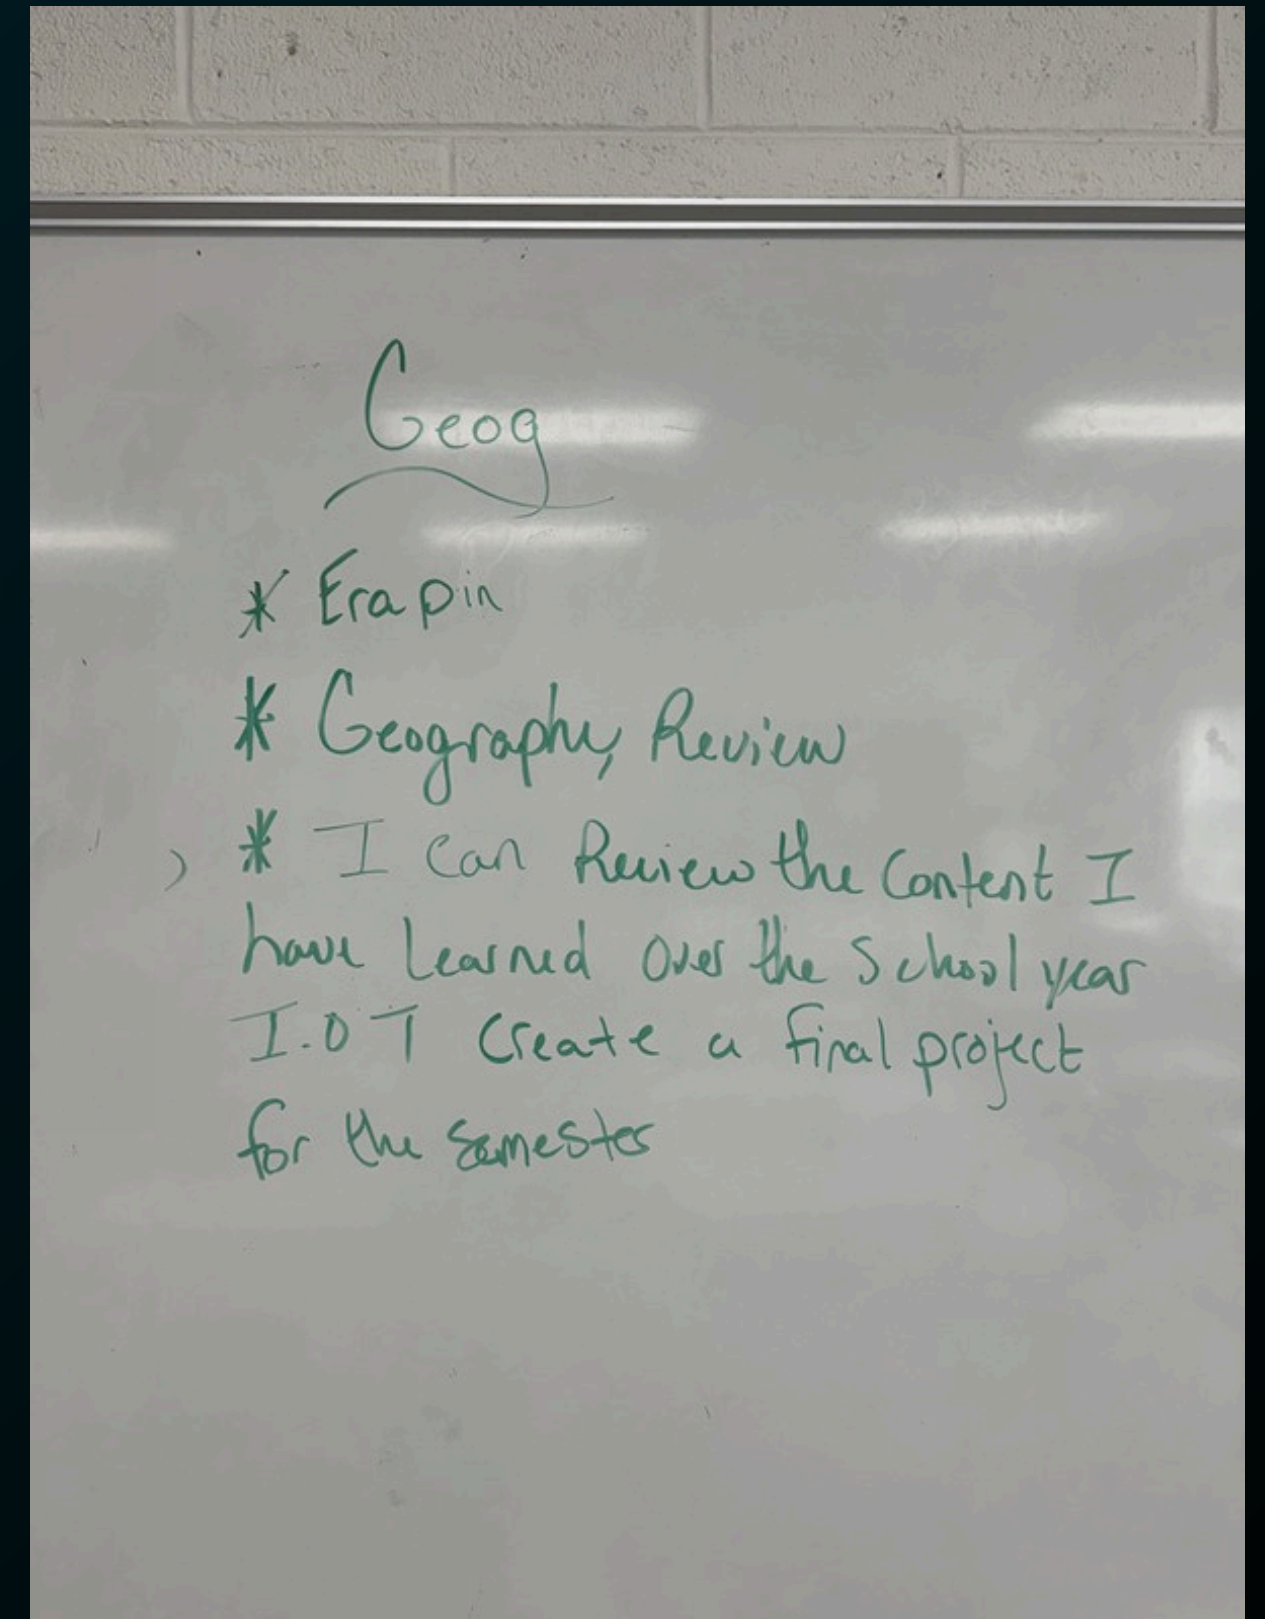 Geog
* Era pin
* Geography Review
* I can Review the Content I
have learned over the School year
I.O T create a final project
for the semester